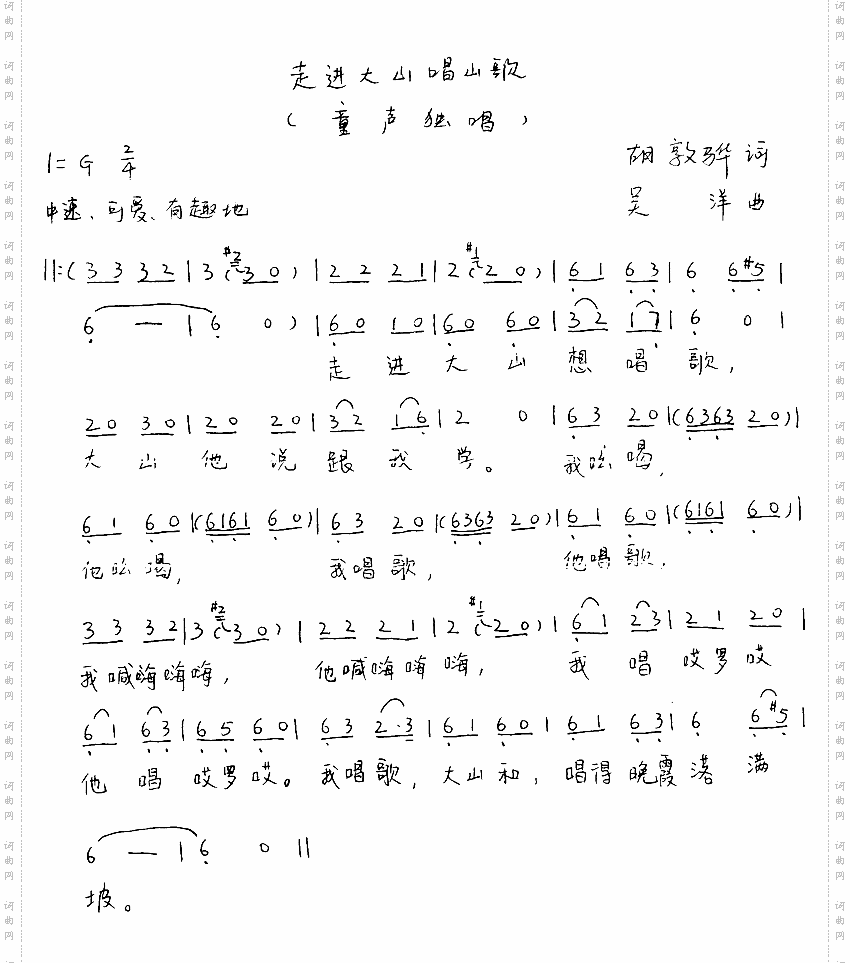 走进大山唱山歌
(童声独唱)
1=G 2/4
胡敦骅词
中速、可爱、有趣地
吴洋曲
||:(3 3 3 2 | 3 #2 (3 0) | 2 2 2 1 | 2 #1 (2 0) | 6 1 6 3 | 6 6 #5 |
6 — | 6 0) | 6 0 1 0 | 6 0 6 0 | 3 2 1 7 | 6 0 |
走进大山想唱歌,
2 0 3 0 | 2 0 2 0 | 3 2 1 6 | 2 0 | 6 3 2 0 | (6363 2 0) |
大山他说跟我学。我吆喝,
6 1 6 0 | (6161 6 0) | 6 3 2 0 | (6363 2 0) | 6 1 6 0 | (6161 6 0) |
他吆喝,我唱歌,他唱歌,
3 3 3 2 | 3 #2 (3 0) | 2 2 2 1 | 2 #1 (2 0) | 6 1 2 3 | 2 1 2 0 |
我喊嗨嗨嗨,他喊嗨嗨嗨,我唱哎罗哎
6 1 6 3 | 6 5 6 0 | 6 3 2·3 | 6 1 6 0 | 6 1 6 3 | 6 6 #5 |
他唱哎罗哎。我唱歌,大山和,唱得晚霞落满
6 — | 6 0 ||
坡。
词曲网